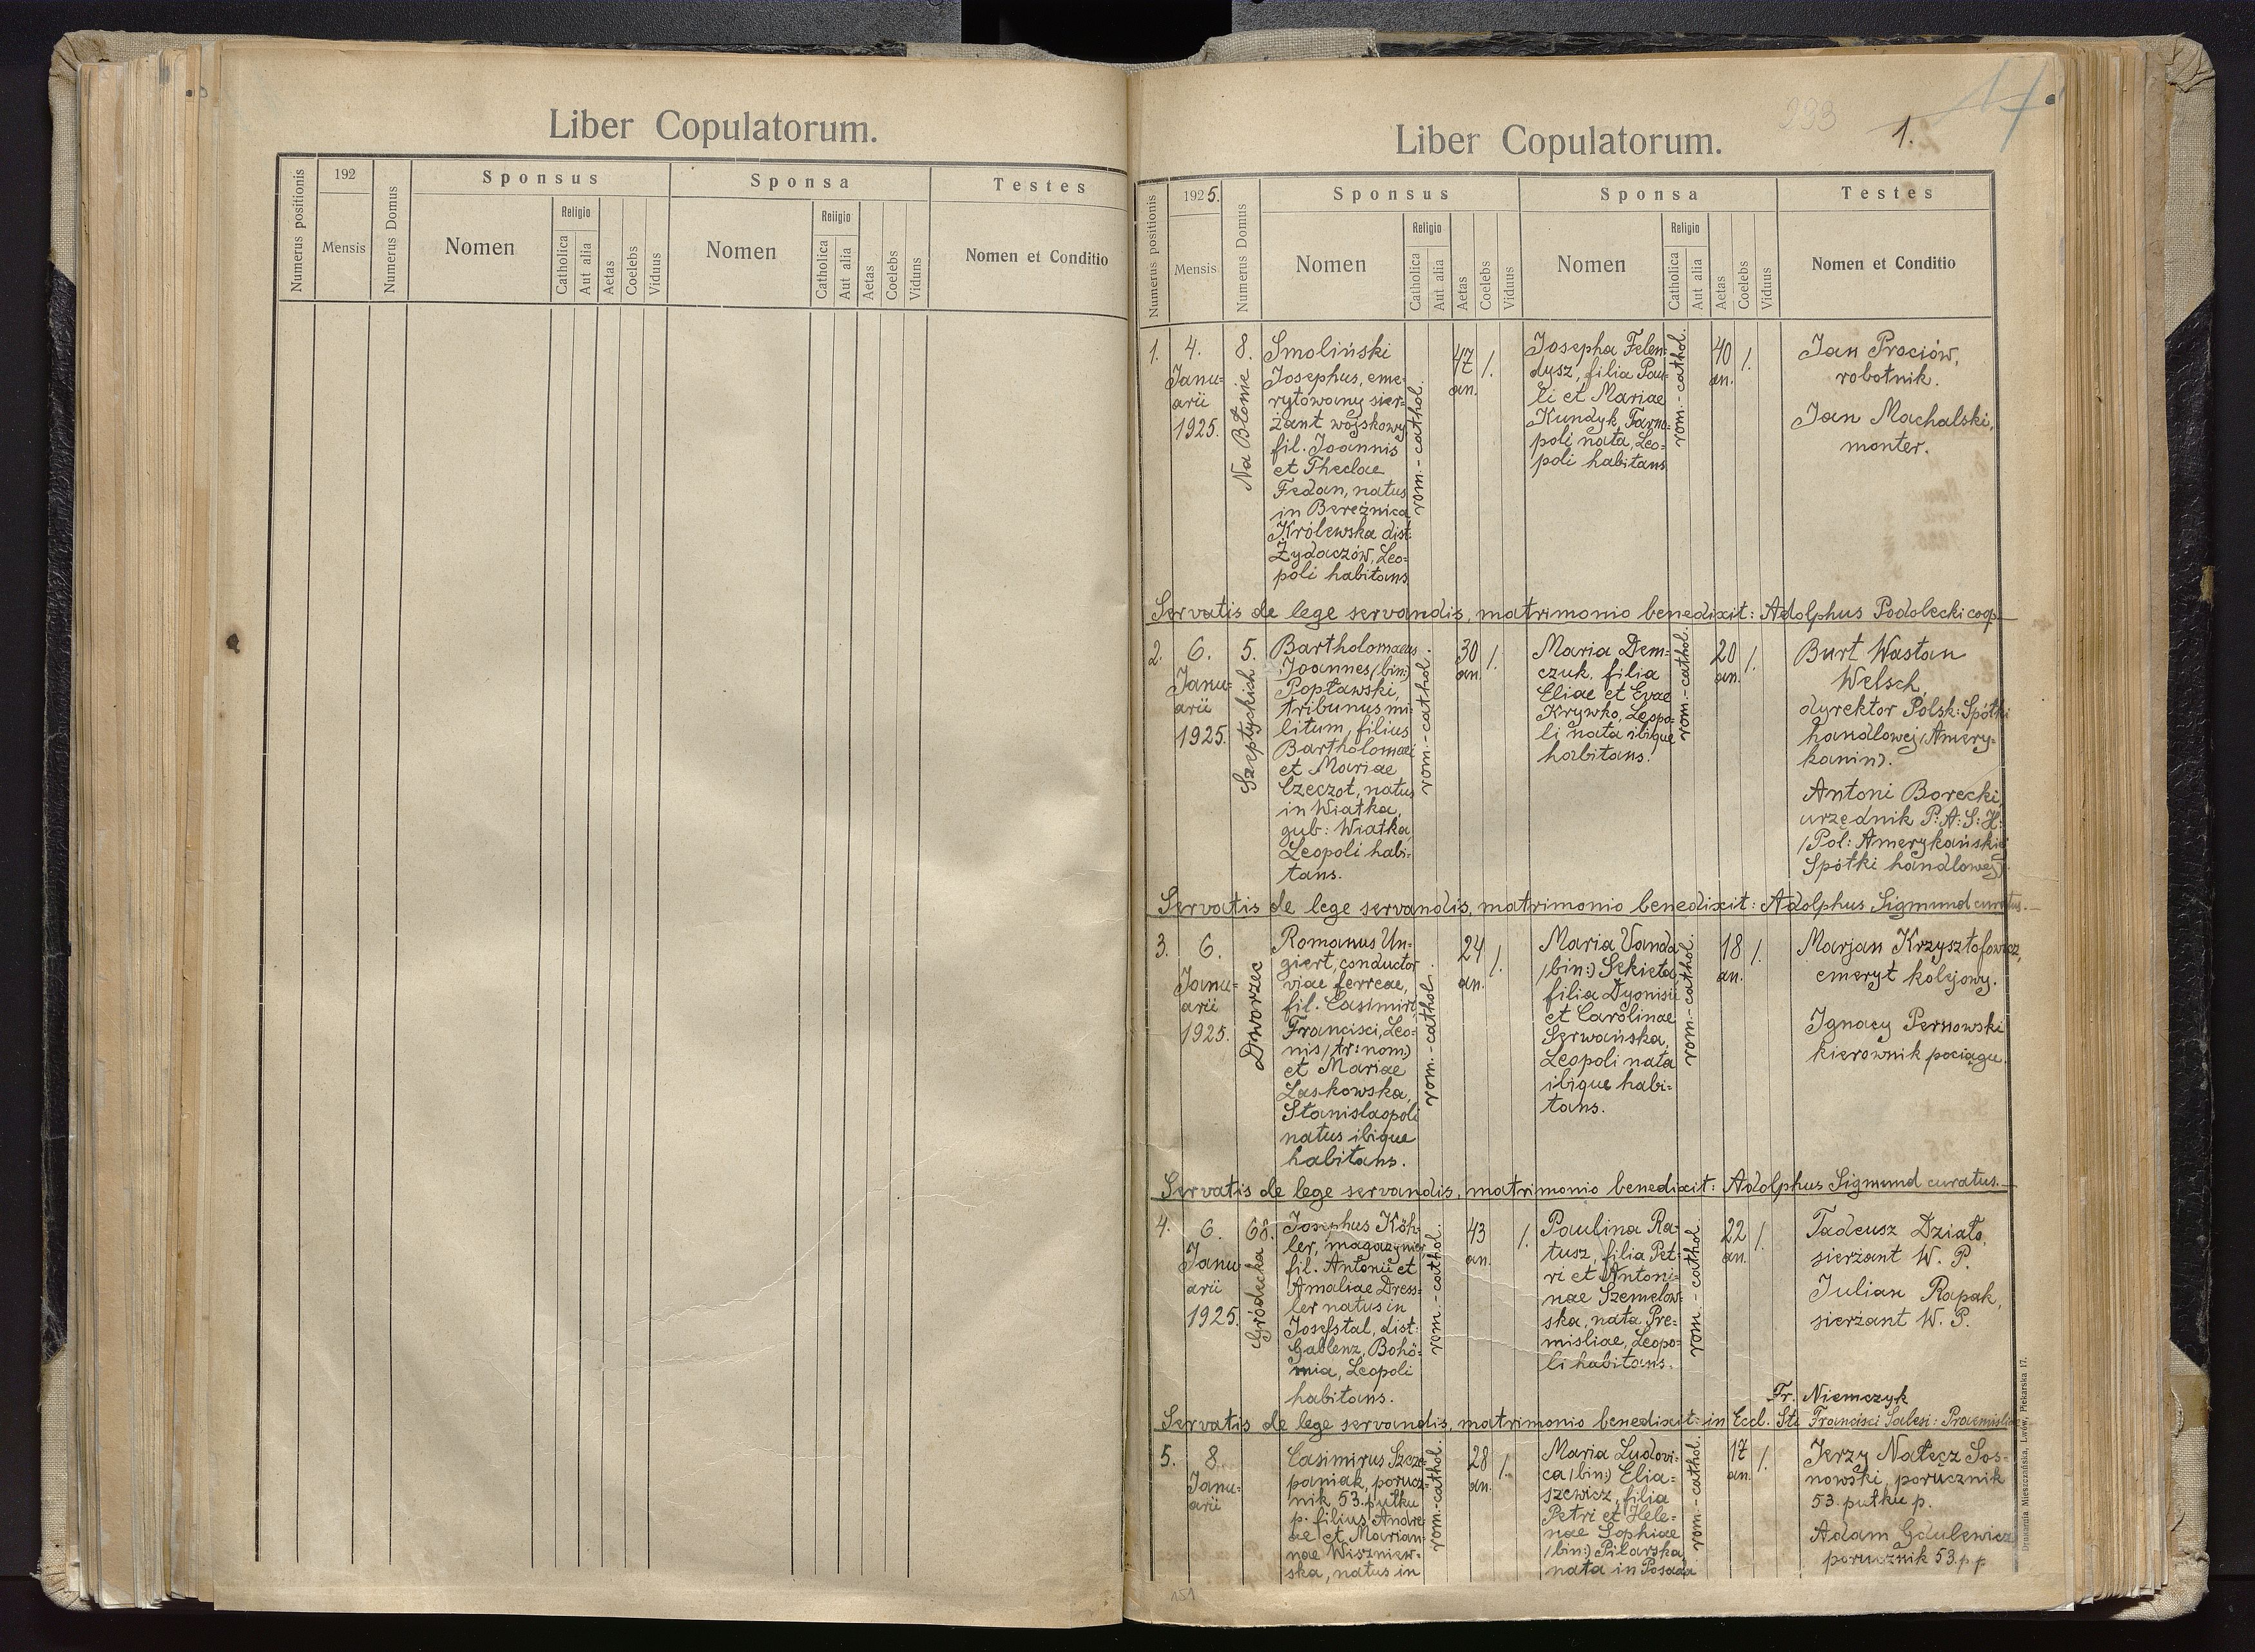 Liber Copulatorum.
Numerus positionis
192
Mensis
Numerus Domus
Sponsus
Nomen
Religio
Catholica
Aut alia
Aetas
Coelebs
Viduus
Sponsa
Nomen
Religio
Catholica
Aut alia
Aetas
Coelebs
Viduns
Testes
Nomen et Conditio
293
1.
17
Liber Copulatorum.
Numerus positionis
1925.
Mensis
Numerus Domus
Sponsus
Nomen
Religio
Catholica
Aut alia
Aetas
Coelebs
Viduus
Sponsa
Nomen
Religio
Catholica
Aut alia
Aetas
Coelebs
Viduus
Testes
Nomen et Conditio
1.
4.
Janu=
arii
1925.
8.
Na Błonie
Smoliński
Josephus, eme=
rytowany sier=
żant wojskowy
fil. Joannis
et Theclae
Fedan, natus
in Bereżnica
Królewska dist:
Żydaczów, Leo=
poli habitans
rom.-cathol.
47
an.
1.
Josepha Felen=
dysz, filia Pau=
li et Mariae
Kundyk, Tarno=
poli nata, Leo=
poli habitans
rom.-cathol.
40
an.
1.
Jan Prociów,
robotnik.
Jan Machalski,
monter.
Servatis de lege servandis, matrimonio benedixit: Adolphus Podolecki coop.
2.
6.
Janu=
arii
1925.
5.
Szeptyckich
Bartholomaeus
Joannes (bin:)
Popławski,
tribunus mi=
litum, filius
Bartholomaei
et Mariae
Czeczot, natus
in Wiatka,
gub: Wiatka,
Leopoli habi=
tans.
rom.-cathol.
30
an.
1.
Maria Dem=
czuk, filia
Eliae et Evae
Krywko, Leopo=
li nata ibique
habitans.
rom.-cathol.
20
an.
1.
Burt Wastan
Welsch,
dyrektor Polsk: Spółki
handlowej (Amery=
kanin).
Antoni Borecki,
urzędnik P: A: S: H:
(Pol: Amerykańskiej
Spółki handlowej).
Servatis de lege servandis, matrimonio benedixit: Adolphus Sigmund curatus.
3.
6.
Janu=
arii
1925.
Dworzec
Romanus Un=
giert, conductor
viae ferreae,
fil. Casimiri,
Francisci, Leo=
nis (tr: nom:)
et Mariae
Laskowska,
Stanislaopoli
natus ibique
habitans.
rom.-cathol.
24
an.
1.
Maria Vanda
(bin:) Sekieta
filia Dyonisii
et Carolinae
Serwańska,
Leopoli nata
ibique habi=
tans.
rom.-cathol.
18
an.
1.
Marjan Krzysztofowicz,
emeryt kolejowy.
Ignacy Pernowski
kierownik pociągu.
Servatis de lege servandis, matrimonio benedixit: Adolphus Sigmund curatus.
4.
6.
Janu=
arii
1925.
68.
Gródecka
Josephus Köh=
ler, magazynier
fil. Antonii et
Amaliae Dress=
ler natus in
Josefstal, dist:
Gablenz, Bohö=
mia, Leopoli
habitans.
rom.-cathol.
43
an.
1.
Paulina Ra=
tusz, filia Pet=
ri et Antoni=
nae Szemelow=
ska, nata Pre=
misliae, Leopo=
li habitans.
rom.-cathol.
22
an.
1.
Tadeusz Działo,
sierżant W. P.
Julian Rapak,
sierżant W. P.
Fr. Niemczyk
Servatis de lege servandis, matrimonio benedixit: in Eccl. Sti Francisci Salesi: Praemisliae
5.
8.
Janu=
arii
Casimirus Szcze=
paniak, porucz=
nik 53. pułku
p. filius Andre=
ae et Marian=
nae Wiszniew=
ska, natus in
rom.-cathol.
28
an.
1.
Maria Ludovi=
ca (bin:) Elia=
szewicz, filia
Petri et Hele=
nae Sophiae
(bin:) Pilarska
nata in Posada
rom.-cathol.
17
an.
1.
Jerzy Nałęcz Sos=
nowski, porucznik
53. pułku p.
Adam Gdulewicz
porucznik 53. p p
Drukarnia Mieszczańska, Lwów, Piekarska 17.
151